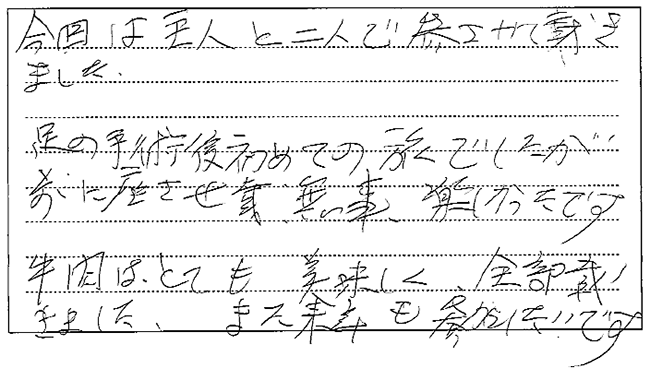 今回は主人と二人で参らせて戴き
ました。
足の手術後初めての旅でしたが
前に座させ貰、無事、楽しかったです
牛肉は、とても美味しく、全部戴
きました、また来年も参加したいです